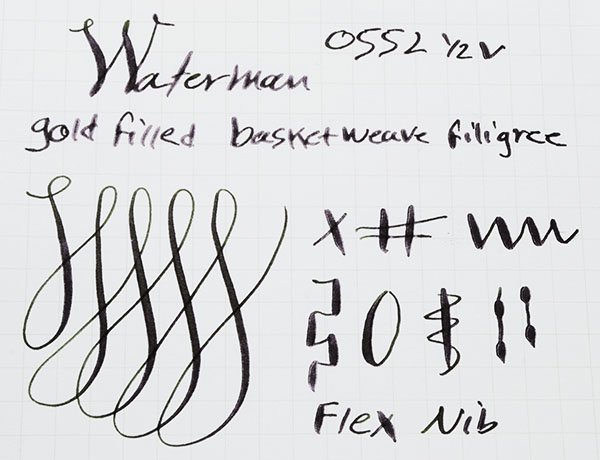 Waterman 0552 1/2 V
gold filled basketweave filigree
X #
Flex Nib